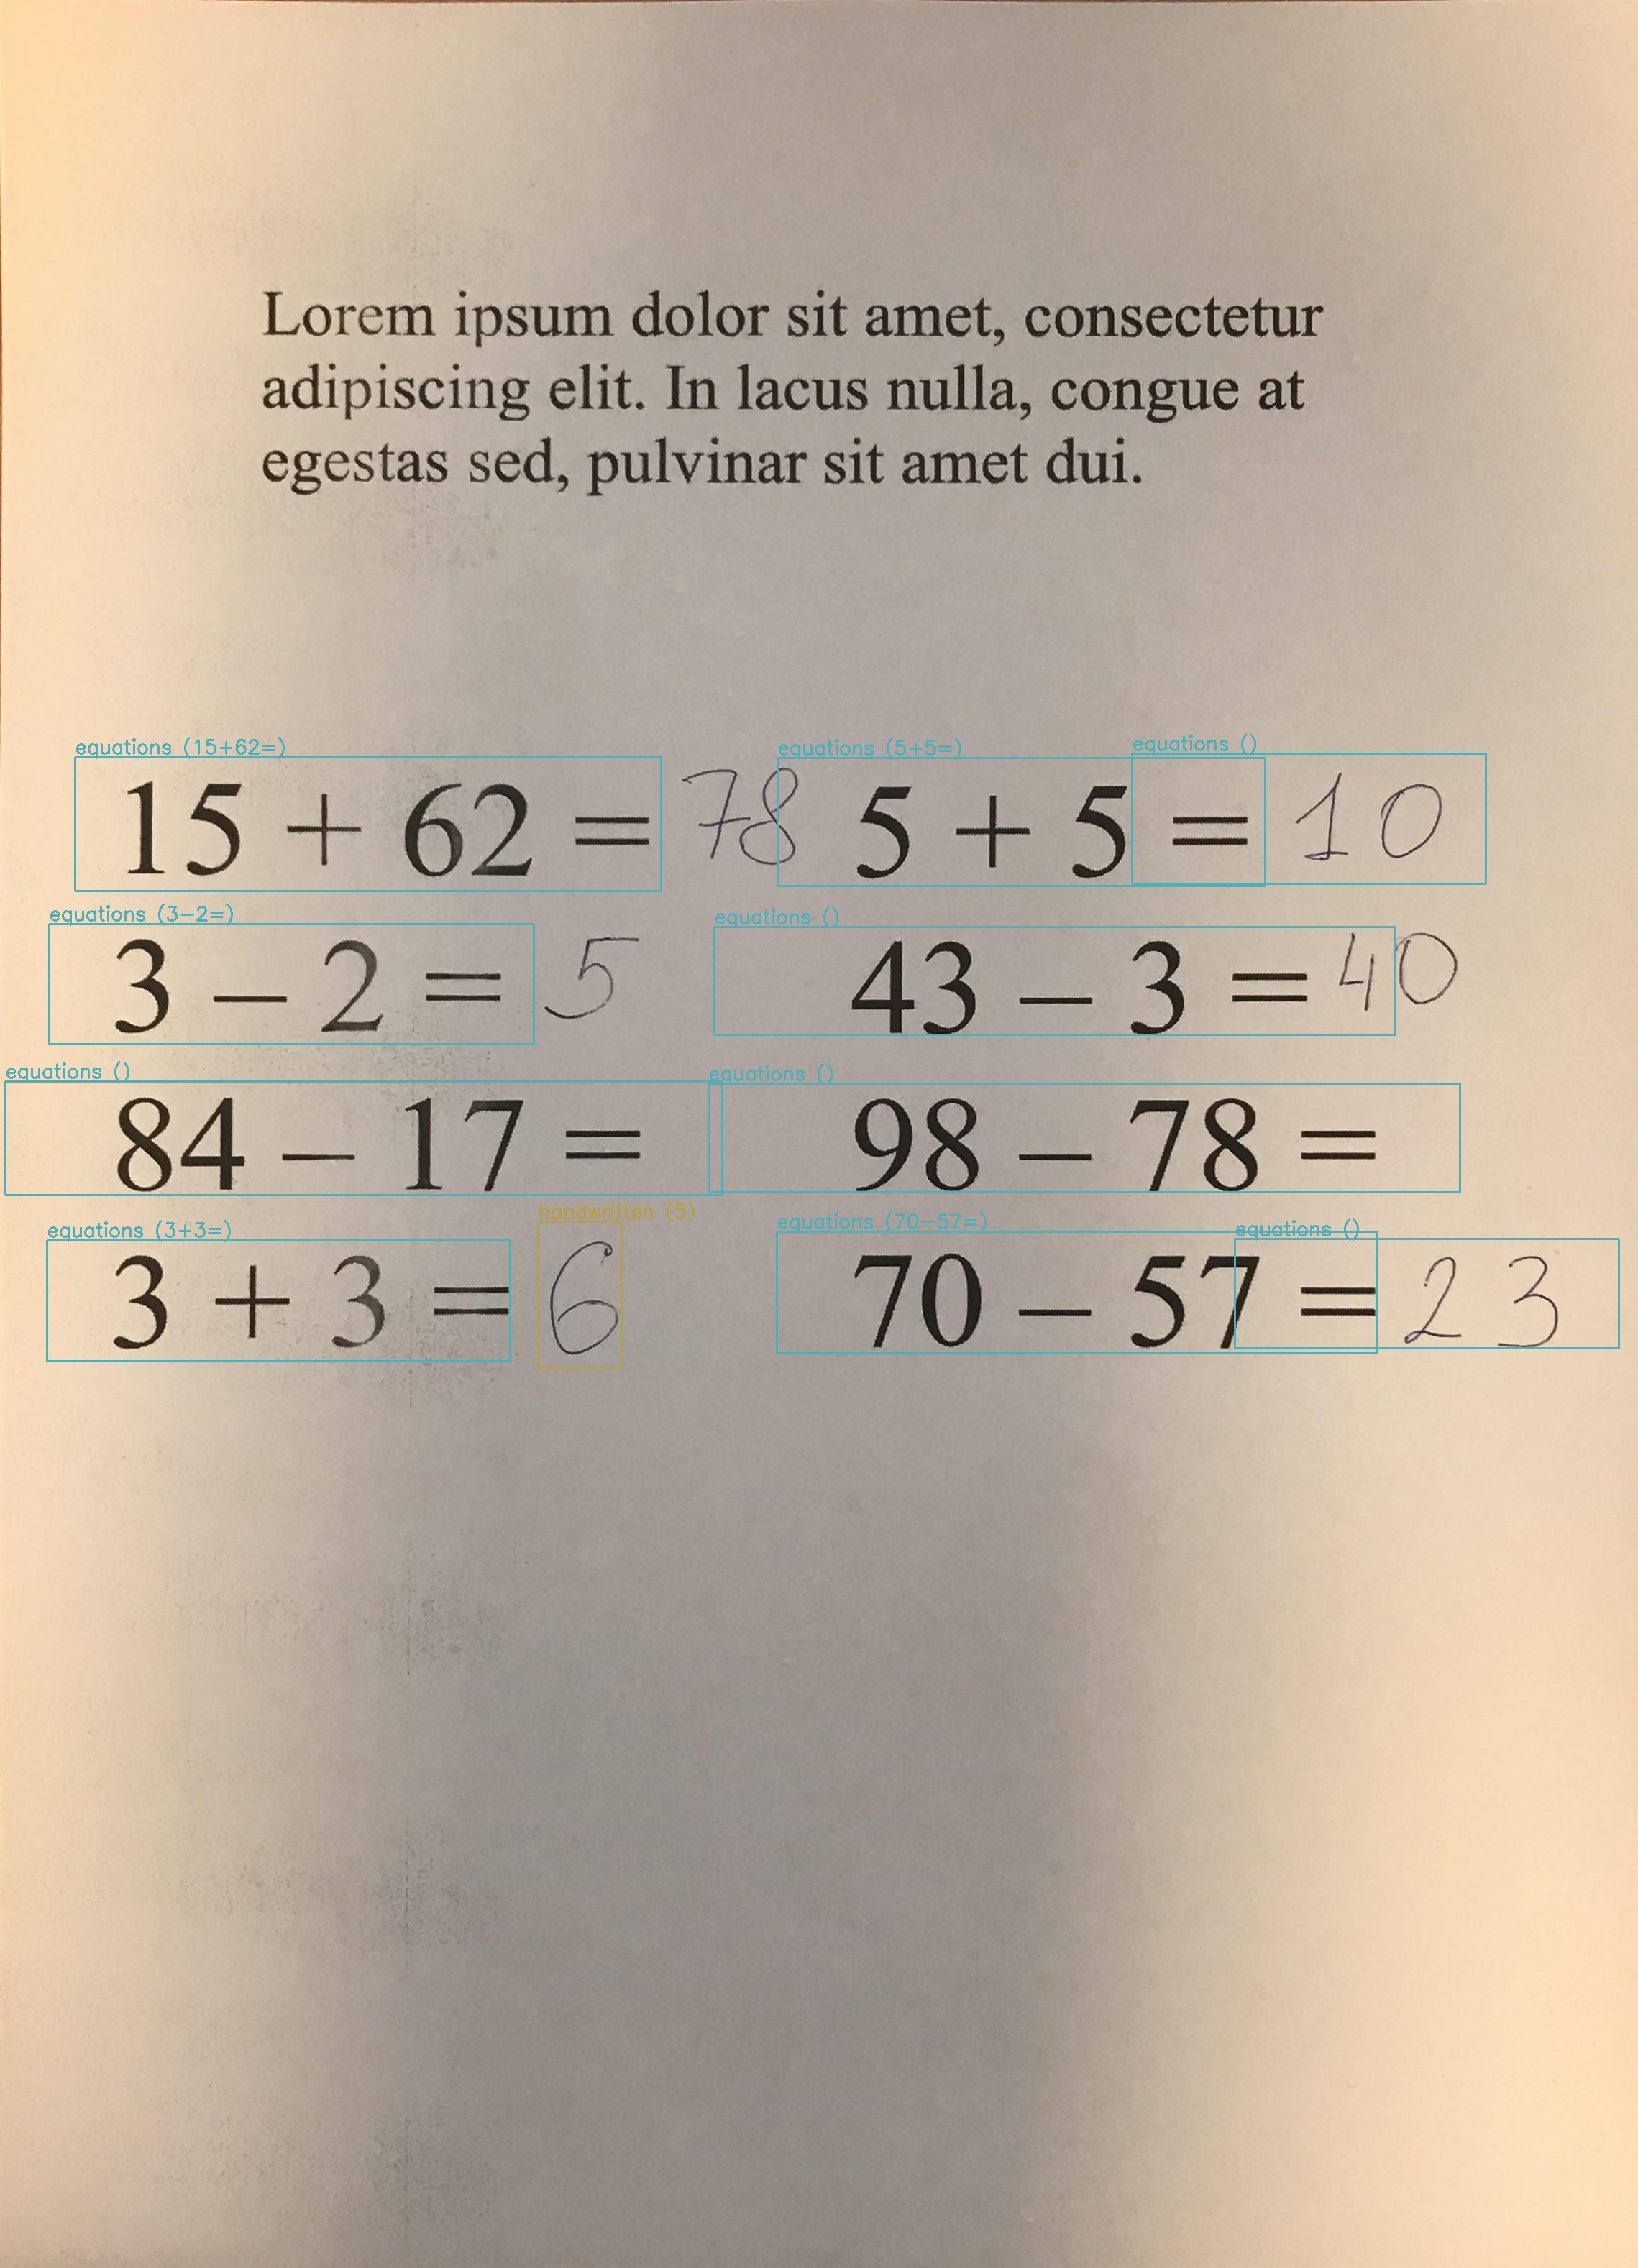 Lorem ipsum dolor sit amet, consectetur
adipiscing elit. In lacus nulla, congue at
egestas sed, pulvinar sit amet dui.
equations (15+62=) equations (5+5=) equations ()
15 + 62 = 78 5 + 5 = 10
equations (3-2=) equations ()
3 – 2 = 5 43 – 3 = 40
equations () equations ()
84 – 17 = 98 – 78 =
equations (3+3=) handwritten (5) equations (70-57=) equations ()
3 + 3 = 6 70 – 57 = 23